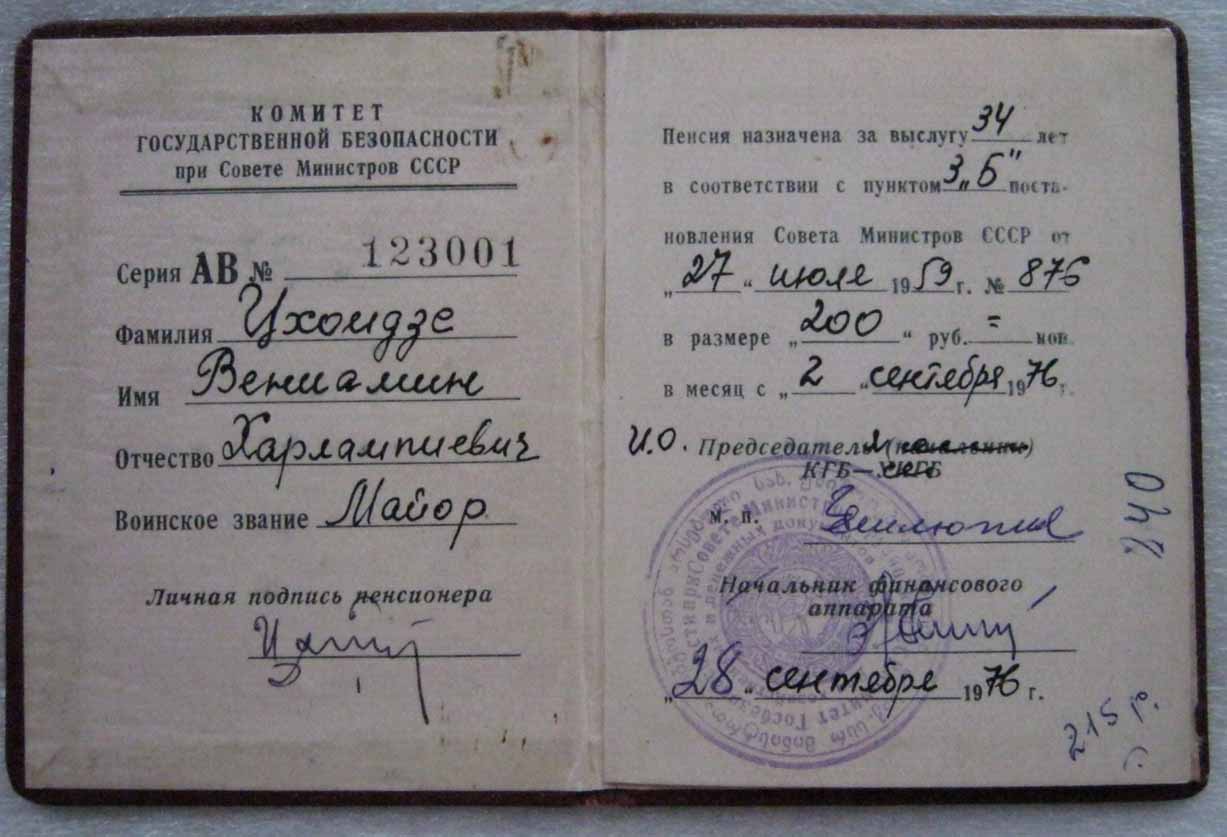 КОМИТЕТ
ГОСУДАРСТВЕННОЙ БЕЗОПАСНОСТИ
при Совете Министров СССР
Серия АВ № 123001
Фамилия Цхоидзе
Имя Вениамин
Отчество Харлампиевич
Воинское звание Майор
Личная подпись пенсионера
Пенсия назначена за выслугу 34 лет
в соответствии с пунктом 3„Б" поста-
новления Совета Министров СССР от
„27" июля 1959 г. № 876
в размере „200" руб. = коп.
в месяц с „2" сентября 1976 г.
И.О. Председателя
КГБ —
М. П.
Начальник финансового
аппарата
„28" сентября 1976 г.
240
215 р.